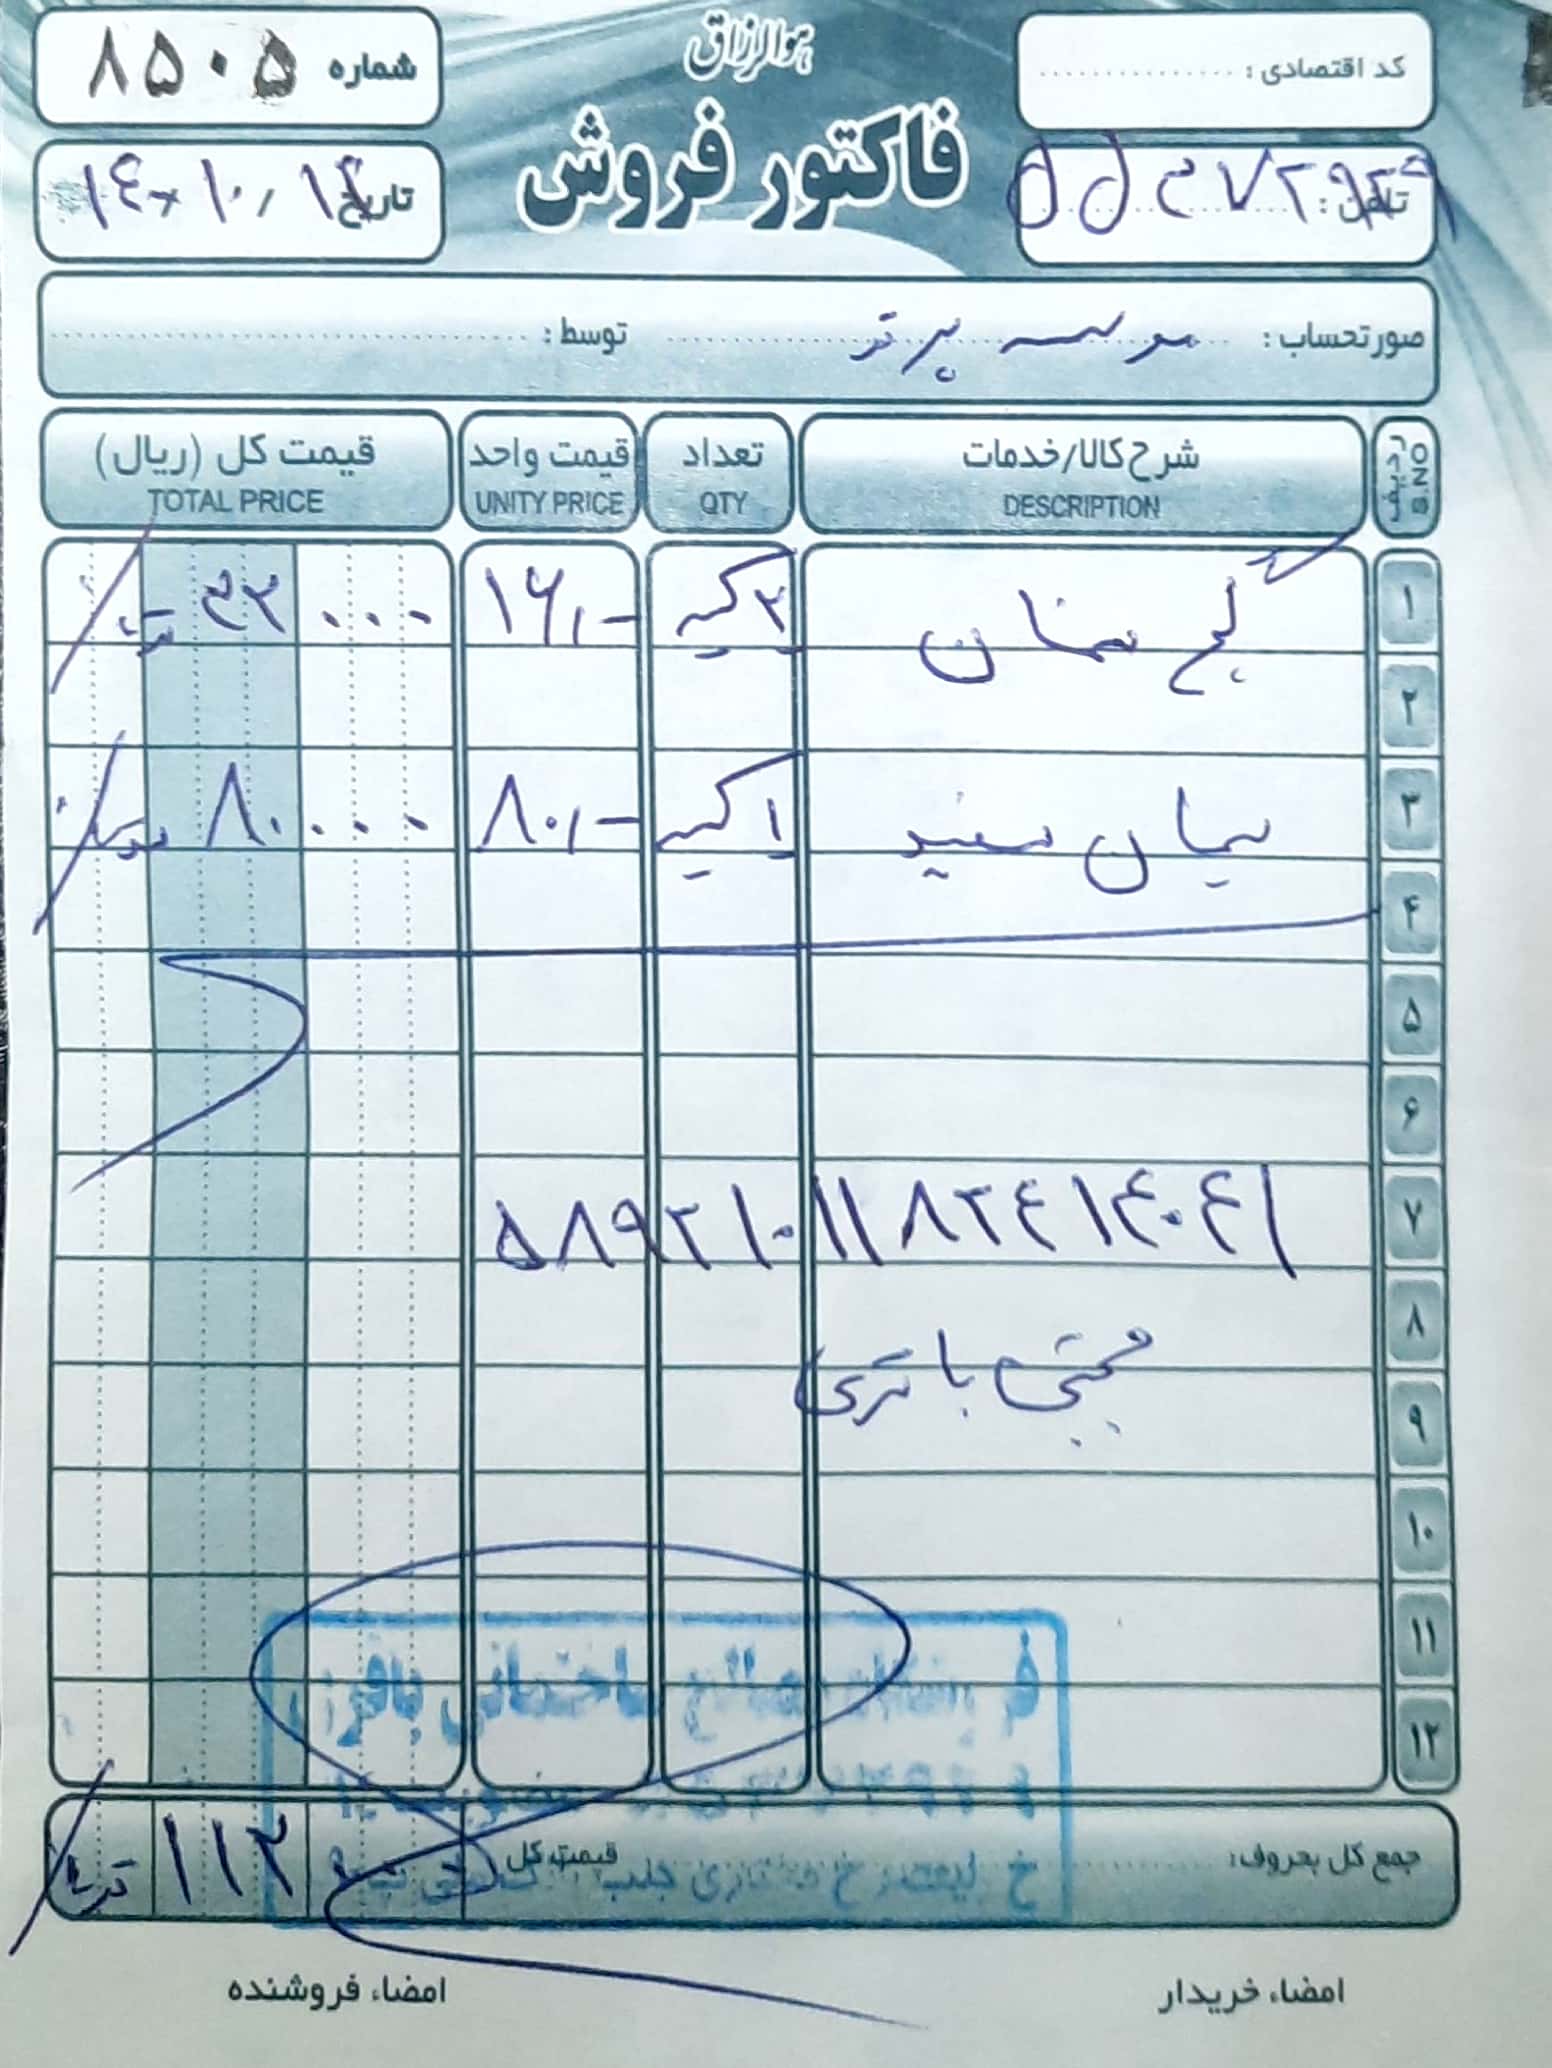 هوالرزاق
فاکتور فروش
شماره ۸۵۰۵
تاریخ ۱۴۰۰/۱۰/
کد اقتصادی :
تلفن :
صورتحساب : موسسه برتر توسط :
ردیف S.NO شرح کالا/خدمات DESCRIPTION تعداد QTY قیمت واحد UNITY PRICE قیمت کل (ریال) TOTAL PRICE
۱ گچ سمنان ۲ کیسه ۱۶/- ۳۲۰۰۰ تومان
۲
۳ سیمان سفید ۱ کیسه ۸۰/- ۸۰۰۰۰ تومان
۴
۵
۶
۷ ۵۸۹۲۱۰۱۱۸۲۴۱۴۰۴۱
۸ مجتبی باقری
۹
۱۰
۱۱
۱۲
فروشگاه مصالح ساختمانی باقری
جمع کل بحروف: قیمت کل ۱۱۲ تومان
امضاء خریدار امضاء فروشنده